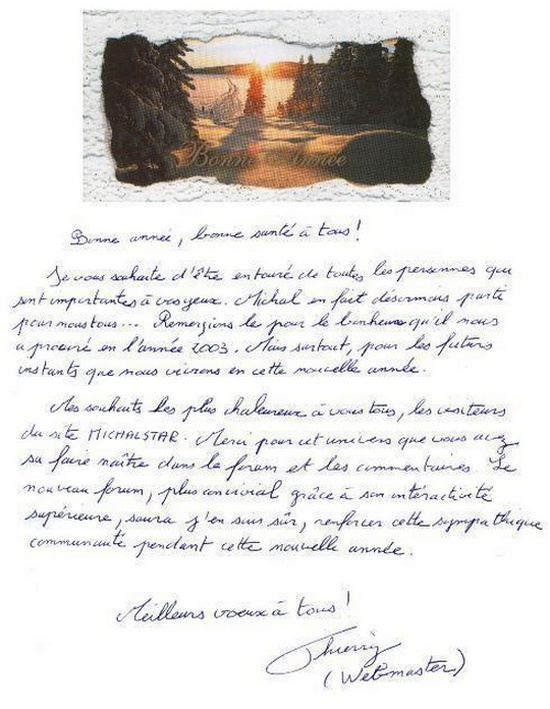 Bonne Année
Bonne année, bonne santé à tous !
Je vous souhaite d'être entouré de toutes les personnes qui
sont importantes à vos yeux. Michal en fait désormais partie
pour nous tous... Remercions le pour le bonheur qu'il nous
a procuré en l'année 2003. Mais surtout, pour les futurs
instants que nous vivrons en cette nouvelle année.
Mes souhaits les plus chaleureux à vous tous, les visiteurs
du site MICHALSTAR. Merci pour cet univers que vous avez
su faire naître dans le forum et les commentaires. Le
nouveau forum, plus convivial grâce à son intéractivité
supérieure, saura j'en suis sûr, renforcer cette sympathique
communauté pendant cette nouvelle année.
Meilleurs voeux à tous !
Thierry
(Webmaster)